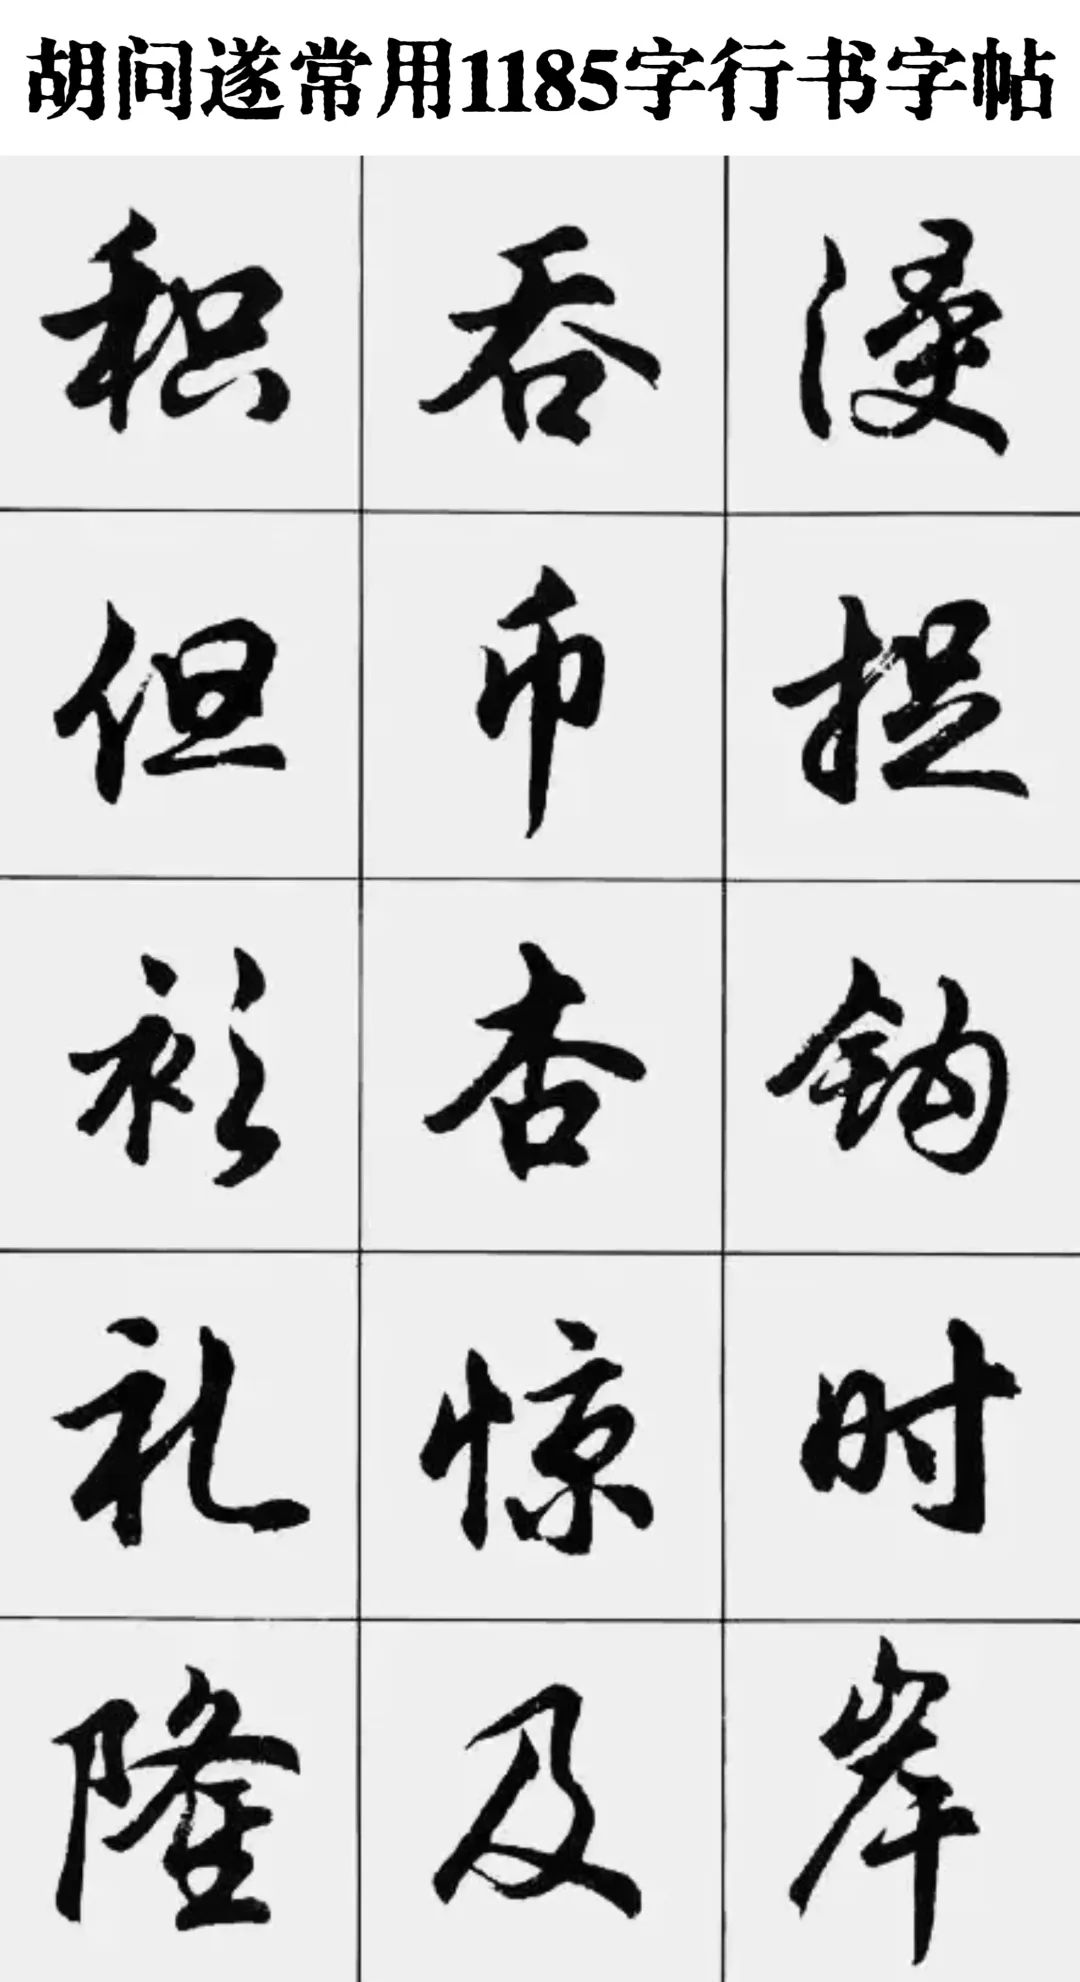 胡问遂常用1185字行书字帖
积吞漫
但币捉
衫杏钩
礼惊时
隆及岸